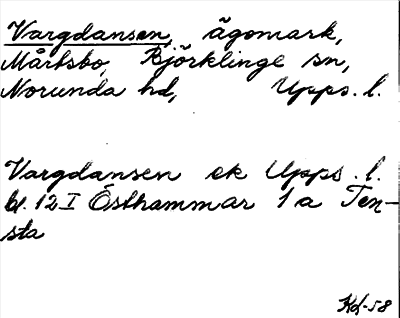 Vargdansen, ägomark,
Mårtsbo, Björklinge sn,
Norunda hd, Upps. l.
Vargdansen ek Upps. l.
bl. 12 I Östhammar 1 a Ten-
sta
Kd-58